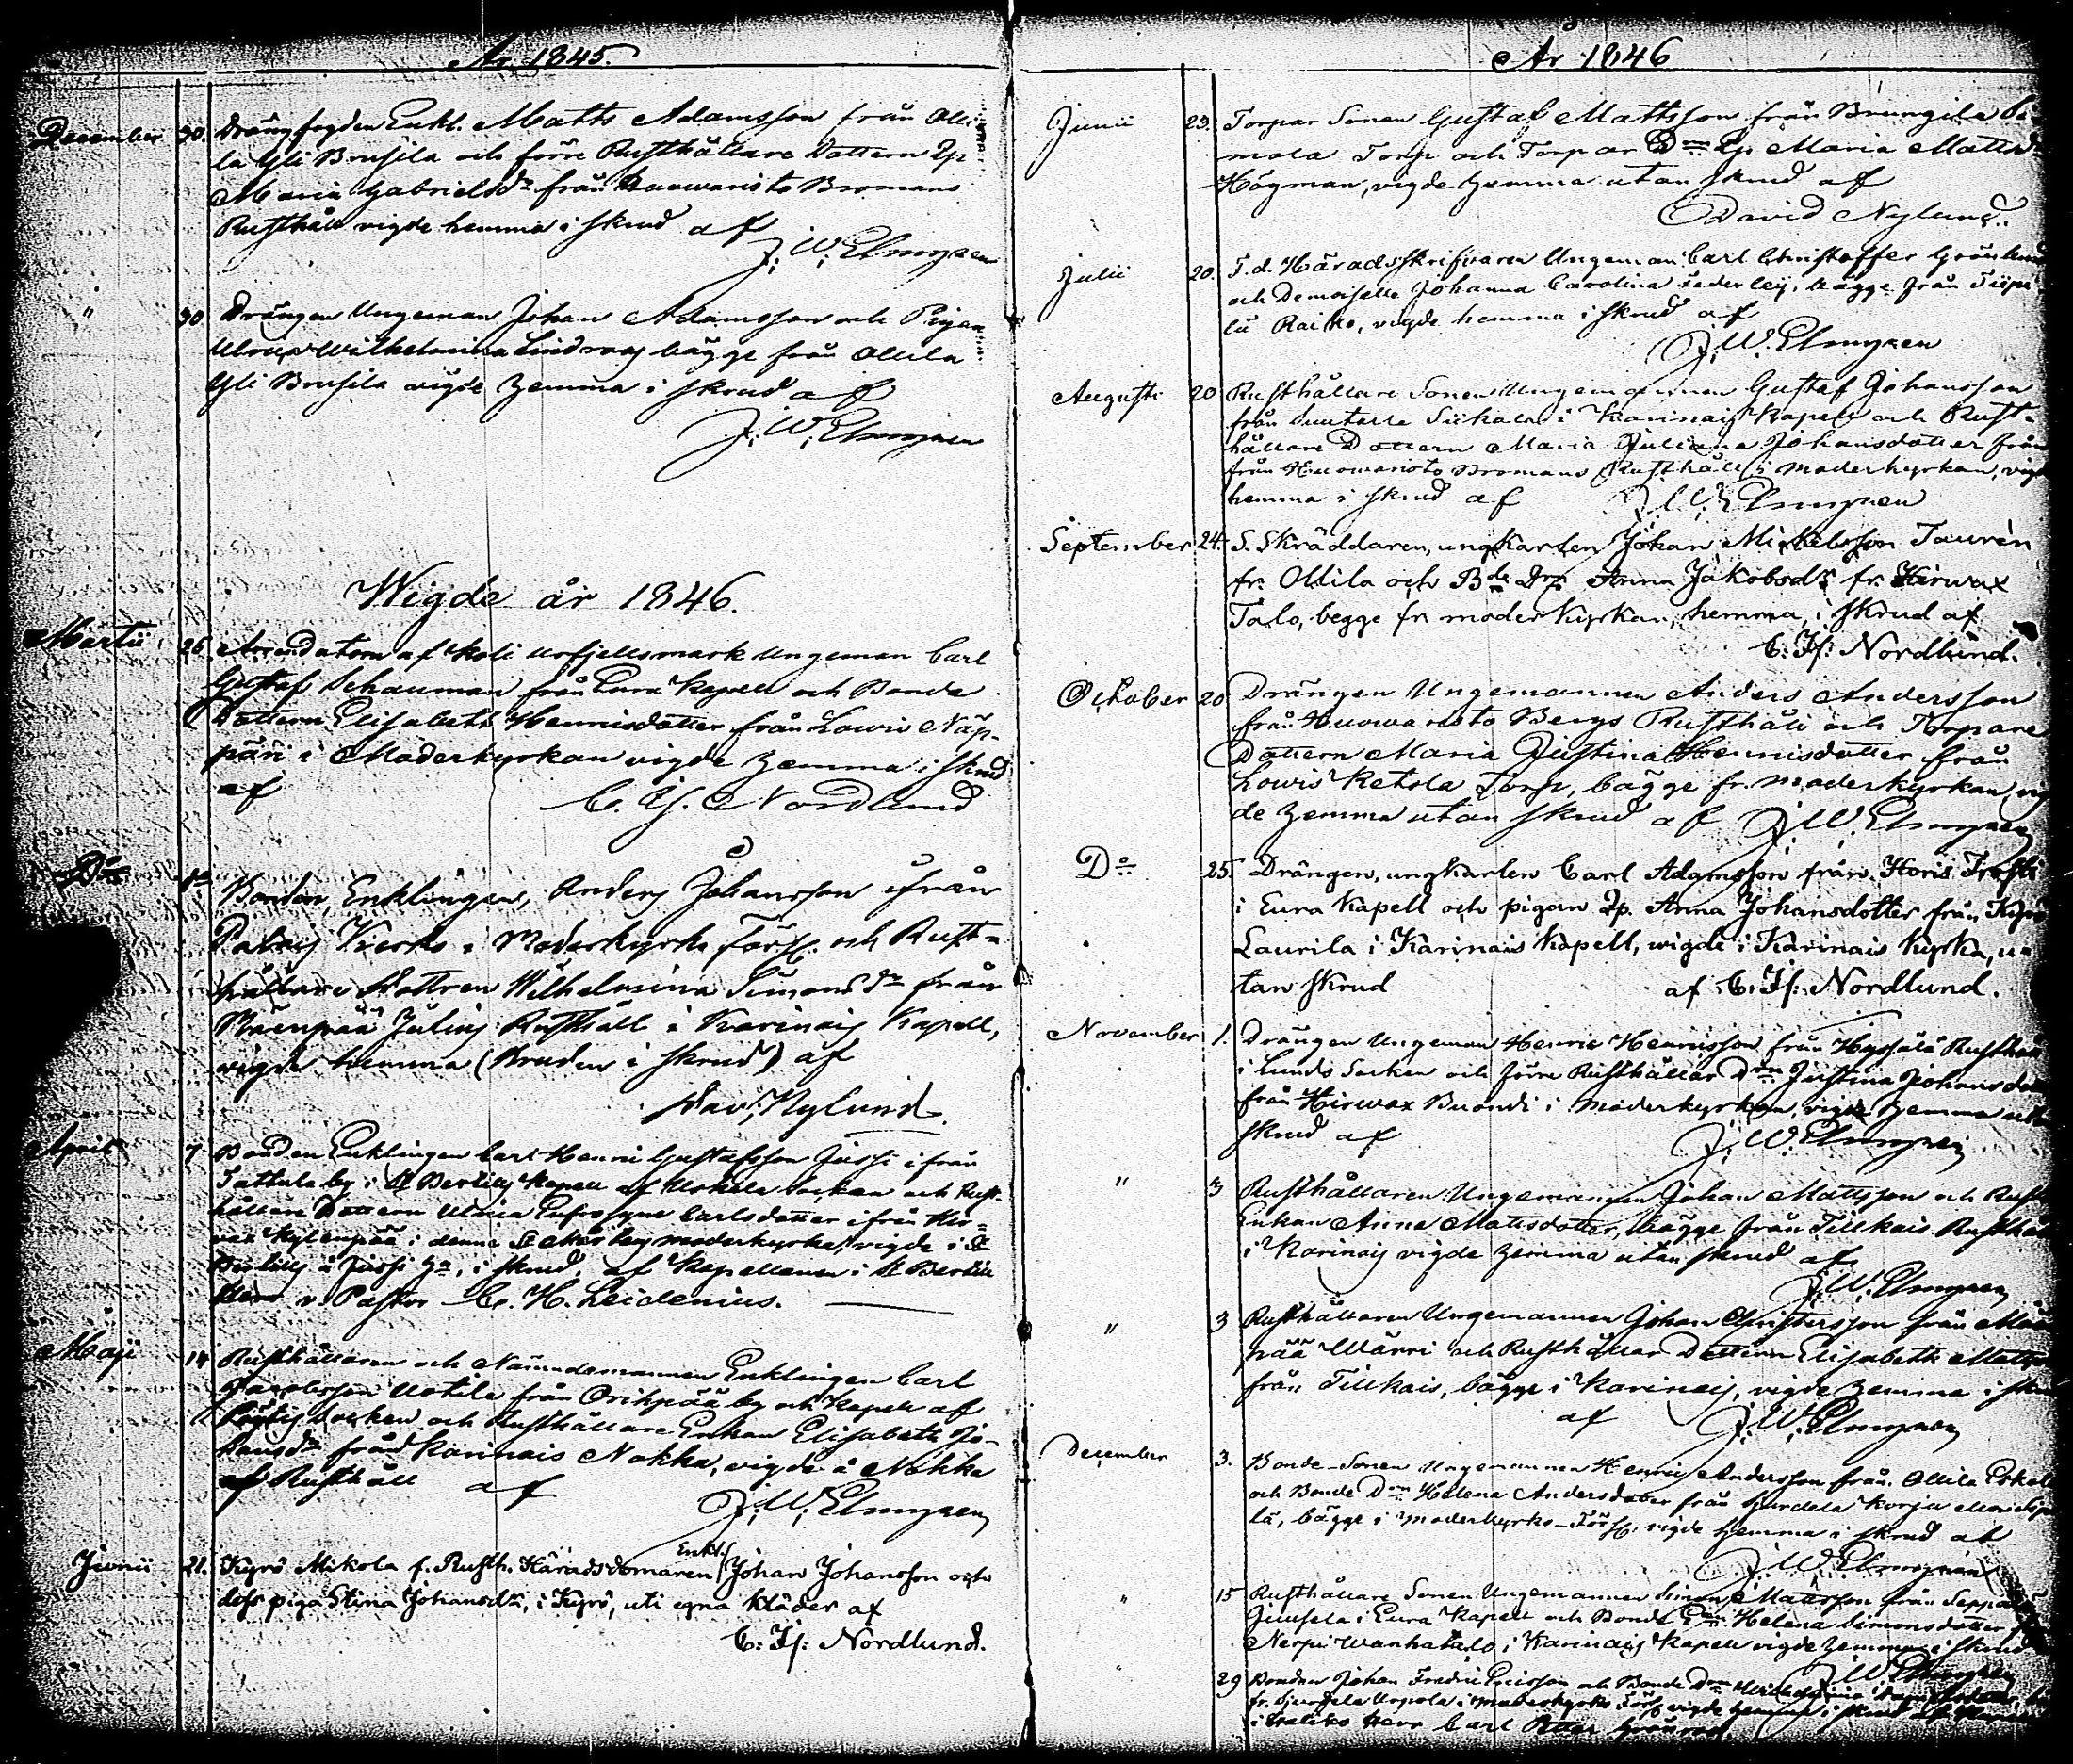 År 1845.
December 30. Drängfogden Enkl. Matts Adamsson från Olli-
la Yli Brusila och förre Rusthållare Dottern Pp
Maria Gabrielsdr från Huowaristo Bromans
Rusthåll vigde hemma i skrud af
J. W. Elmgren
" 30 Drängen Ungeman Johan Adamsson och Pigan
Ulrica Wilhelmina Lindroos bägge från Ollila
Yli Brusila vigde hemma i skrud af
J. W. Elmgren
Wigde år 1846.
Martii 26 Arrendatorn af Ungeman Carl
Gustaf Schauman från Eura Kapell och Bonde
Dottern Elisabeth Henricsdotter från Lowis Näp-
päri i Moderkyrkan vigde hemma i skrud
af C. Is. Nordlund
Do Bonden, Enklingen, Anders Johansson ifrån
i Moderkyrko Förs. och Rust-
hållare Dottren Wilhelmina Simonsdr från
Mäenpää Julius Rusthåll i Karinais Kapell,
vigde hemma (Bruden i skrud) af
Dav. Nylund
April 7 Bonden Enklingen Carl Henric Gustafsson Jussi ifrån
Tattula by i St Bertils Kapell af Uskela Socken och Rust-
hållare Dottern Ulrica Eufrosyne Carlsdotter ifrån Hir-
vas Kylänpää i denne moderkyrka, vigde i St
Bertils å Jussi i skrud, af Kapellanen i St Bertils
v. Pastor C. H. Leidenius.
Maji 14 Rusthållaren och Nämndemannen Enklingen Carl
Jacobsson Uotila från Orihpää by och Kapell af
Pöytis Socken och Rusthållare Enkan Elisabeth Jo-
hansdr från Karinais Nokka, vigde å Nokka
Rusthåll af
J. W. Elmgren
Junii 21. Kyrö Mikola f. Rusth. Häradsdomaren Enkl. Johan Johansson och
piga Stina Johansdr, i Kyrö, uti egna kläder af
C. Is: Nordlund.
År 1846
Junii 23. Torpar Sonen Gustaf Mattsson från
Torp och Torpar Dn Pp Maria Mattsdr
Högman, vigde hemma utan skrud af
David Nylund.
Julii 20. T. d. Häradsskrifvaren Ungeman Carl Christoffer Grönlund
och Demoiselle Johanna Carolina Federley, bägge från
Raiko, vigde hemma i skrud af
J. W. Elmgren
Augusti 20 Rusthållare Sonen Ungemannen Gustaf Johansson
från i Karinais Kapell och Rust-
hållare Dottern Maria Juliana Johansdotter från
från Huowaristo Bromans Rusthåll i Moderkyrkan, vigde
hemma i skrud af J. W. Elmgren
September 24. S. Skräddaren, ungkarlen Johan Michelsson Taurén
fr. Ollila och Bde Dr: Anna Jakobsdr fr. Hirwax
Talo, begge fr. moder kyrkan, hemma, i skrud af
C. Is: Nordlund.
October 20 Drängen Ungemannen Anders Andersson
från Huowaristo Bergs Rusthåll och Torpare
Dottern Maria Justina Henricsdotter från
Lowis Ketola Torp, bägge fr. moderkyrkan, vig-
de hemma utan skrud af J. W. Elmgren
Do 25. Drängen, ungkarlen Carl Adamsson från Horis Trasti
i Eura Kapell och pigan Pp. Anna Johansdotter från Kyrö
Laurila i Karinais Kapell, wigde i Karinais kyrka, u-
tan skrud af C. Is: Nordlund.
November 1. Drängen Ungeman Henric Henricsson från Rusthåll
i Lundo Socken och förre Rusthållar Dn Justina Johansdotter
från Hirwax Buondi i moderkyrkan, vigde hemma utan
skrud af J. W. Elmgren
" 3 Rusthållaren Ungemannen Johan Mattsson och Rusth
Enkan Anna Mattsdotter, bägge från Tillkais Rusthåll
i Karinais vigde hemma utan skrud af
J. W. Elmgren
" 3 Rusthållaren Ungemannen Johan Christersson från Mäen
pää Wärri och Rusthållar Dottern Elisabeth Mattsd
från Tillkais, bägge i Karinais, vigde hemma i skrud
af J. W. Elmgren
December 3. Bonde-Sonen Ungemannen Henric Andersson från Ollila Eskola
och Bonde Dn Helena Andersdotter från Gurdela Korju
lä, bägge i moderkyrko-Förs. vigde hemma i skrud af
J. W. Elmgren
" 15 Rusthållare Sonen Ungemannen Simon Mattsson från
i Eura Kapell och Bonde Dn Helena Simonsdotter
Wanhatalo i Karinais Kapell vigde hemma i skrud
J. W. Elmgren
29 Bonden Johan Fredric Ericsson och Bonde Dn Wilhelmina
i moderkyrko Förs vigde hemma i skrud
i Haliko Herr Carl Petter